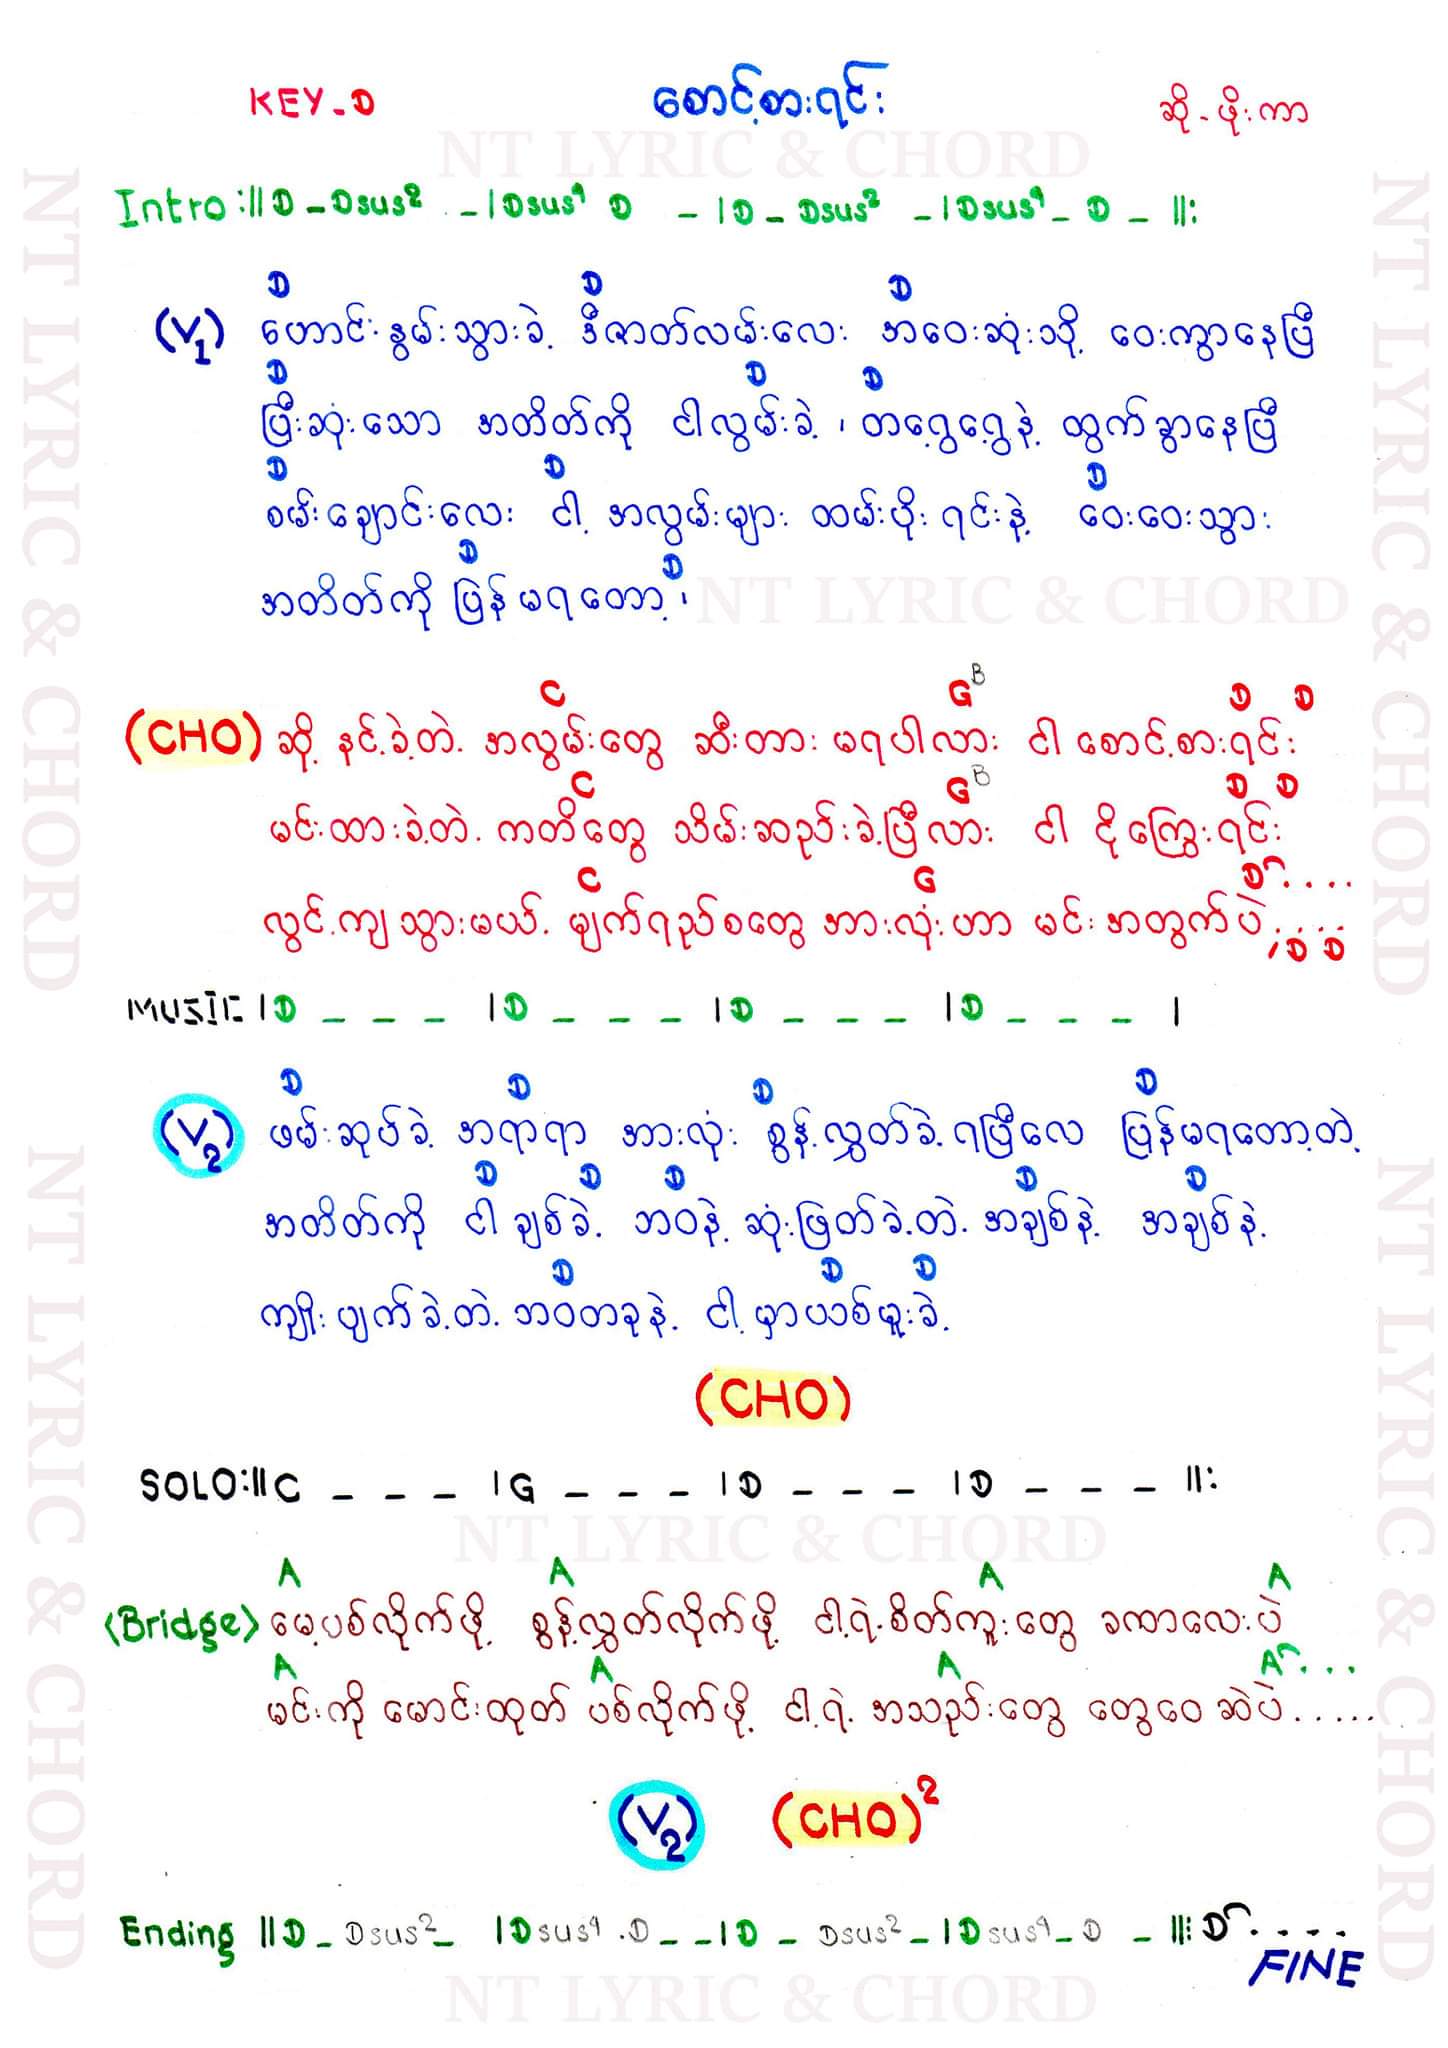 KEY-D စောင့်စားရင်း ဆို-ဖိုးကာ
NT LYRIC & CHORD
Intro :|| D - Dsus2 - | Dsus4 D - | D - Dsus2 - | Dsus4 - D - ||:
D D D
(V1) ဟောင်းနွမ်းသွားခဲ့ ဒီဇာတ်လမ်းလေး အဝေးဆုံးသို့ ဝေးကွာနေပြီ
D D D
ပြီးဆုံးသော အတိတ်ကို ငါလွမ်းခဲ့၊ တငွေ့ငွေ့နဲ့ ထွက်ခွာနေပြီ
D D D
စမ်းချောင်းလေး ငါ့ အလွမ်းများ ထမ်းပိုးရင်းနဲ့ ဝေးဝေးသွား
D D
အတိတ်ကို ပြန်မရတော့၊
NT LYRIC & CHORD
C G B D D
(CHO) ဆို့နင့်ခဲ့တဲ့ အလွမ်းတွေ ဆီးတားမရပါလား ငါစောင့်စားရင်း
C G B D D
မင်းထားခဲ့တဲ့ ကတိတွေ သိမ်းဆည်းခဲ့ပြီလား ငါ ငိုကြွေးရင်း
C G D....
လွင့်ကျသွားမယ့် မျက်ရည်စတွေ အားလုံးဟာ မင်းအတွက်ပဲ....
, D D
MUSIC | D _ _ _ | D _ _ _ | D _ _ _ | D _ _ _ |
D D D D
(V2) ဖမ်းဆုပ်ခဲ့ အရာရာ အားလုံး စွန့်လွှတ်ခဲ့ရပြီလေ ပြန်မရတော့တဲ့
D D D D D
အတိတ်ကို ငါချစ်ခဲ့ ဘဝနဲ့ ဆုံးဖြတ်ခဲ့တဲ့ အချစ်နဲ့ အချစ်နဲ့
D D D
ကျိုးပျက်ခဲ့တဲ့ ဘဝတခုနဲ့ ငါ့မှာယစ်မူးခဲ့
(CHO)
SOLO :|| C _ _ _ | G _ _ _ | D _ _ _ | D _ _ _ ||:
NT LYRIC & CHORD
A A A A
<Bridge> မေ့ပစ်လိုက်ဖို့ စွန့်လွှတ်လိုက်ဖို့ ငါ့ရဲ့စိတ်ကူးတွေ ခဏလေးပဲ
A A A A...
မင်းကို မောင်းထုတ် ပစ်လိုက်ဖို့ ငါ့ရဲ့ အသည်းတွေ တွေဝေဆဲပဲ.....
(V2) (CHO)2
Ending || D - Dsus2 - | Dsus4 . D - - | D - Dsus2 - | Dsus4 - D - ||: D....
FINE
NT LYRIC & CHORD
NT LYRIC & CHORD
NT LYRIC & CHORD
NT LYRIC & CHORD
NT LYRIC & CHORD